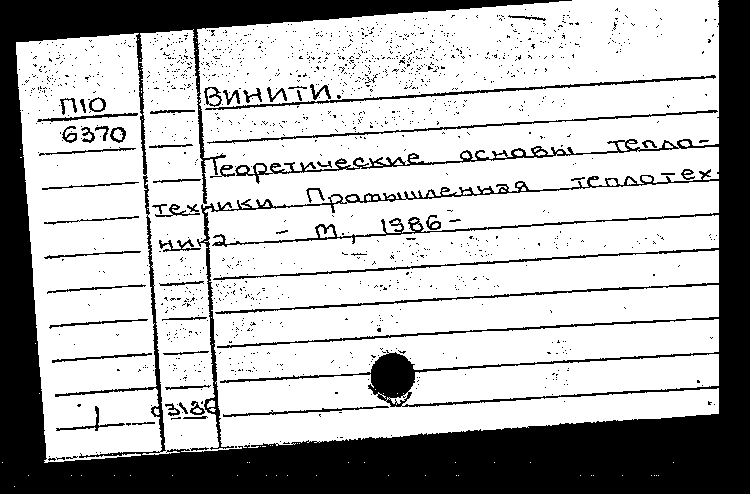 П10
6370
ВИНИТИ.
Теоретические основы тепло-
техники. Промышленная теплотех-
ника. - М., 1986-
1